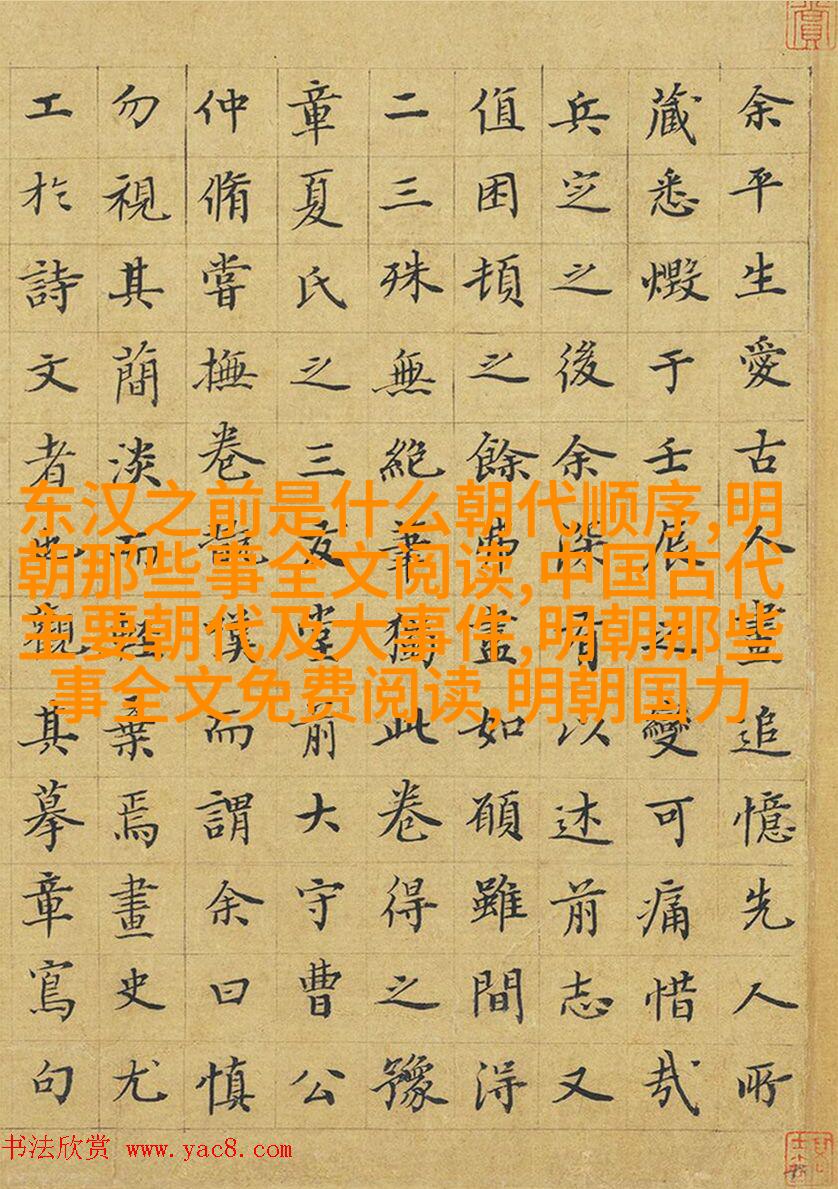 余平生愛古人畫追憶先人所
藏悉燬于壬辰之變可痛惜哉
兵㝎之後余深有以述前志又
值困頓之餘弗盡如願雖間得
二三殊無絕筆獨此卷得之豫
章夏氏之三友堂前大守曹公
仲脩嘗撫卷嘆而謂余曰慎
勿視其簡淡而輕棄焉畫史尤
工於詩文者也觀其摹章寫句
东汉之前是什么朝代顺序,明
朝那些事全文阅读,中国古代
主要朝代及大事件,明朝那些
事全文免费阅读,明朝国力
书法欣赏 www.yac8.com